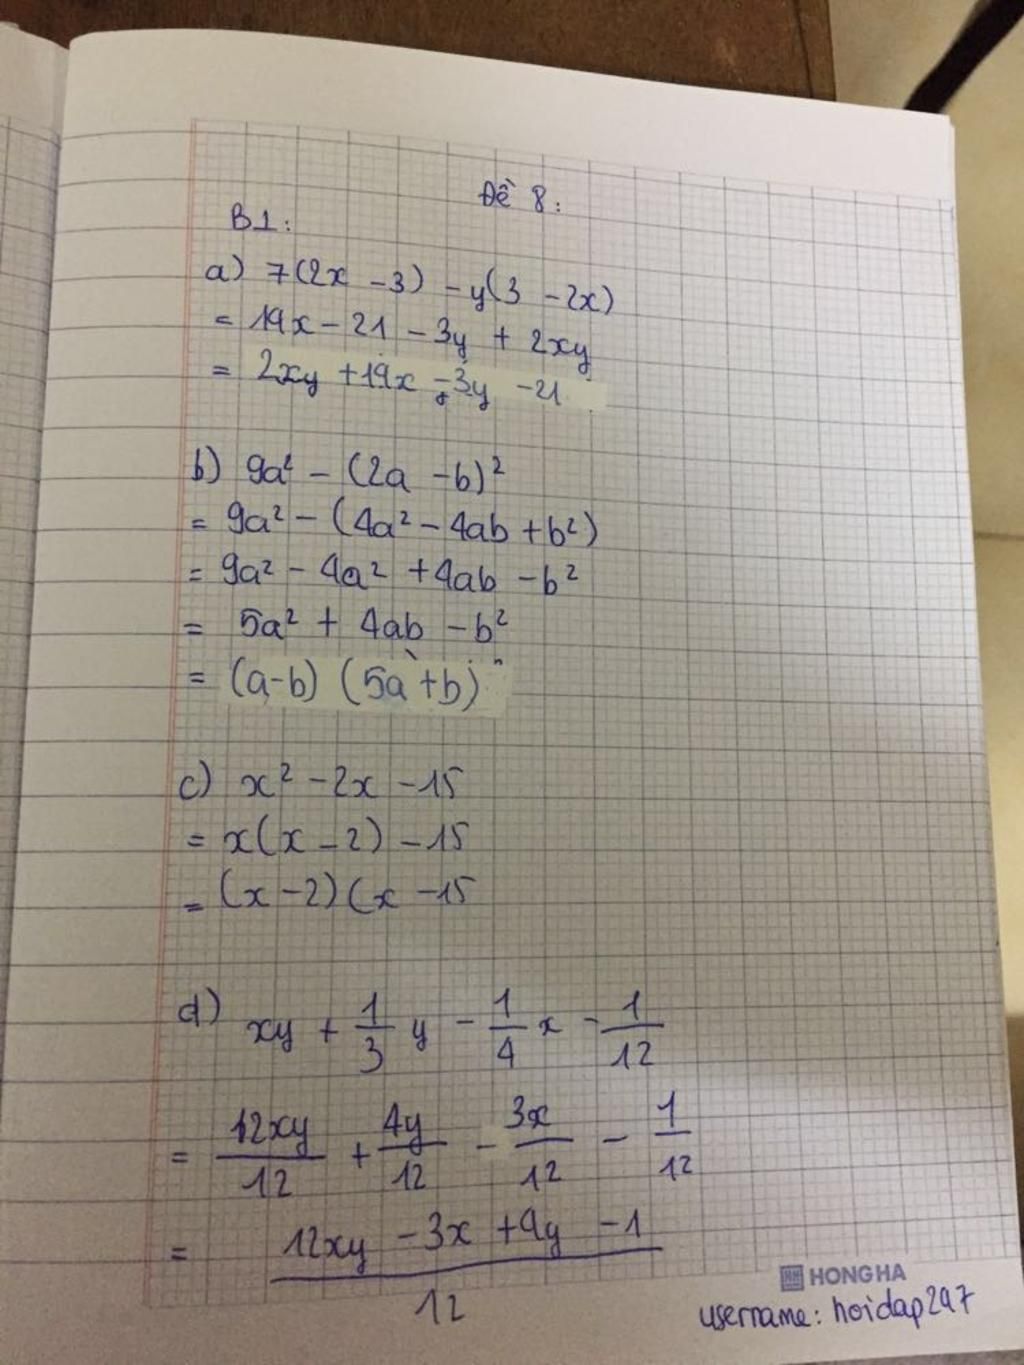 Đề 8:
B1:
a) 7(2x - 3) - y(3 - 2x)
= 14x - 21 - 3y + 2xy
= 2xy + 14x - 3y - 21
b) 9a² - (2a - b)²
= 9a² - (4a² - 4ab + b²)
= 9a² - 4a² + 4ab - b²
= 5a² + 4ab - b²
= (a - b) (5a + b)
c) x² - 2x - 15
= x(x - 2) - 15
= (x - 2)(x - 15
d) xy + 1/3 y - 1/4 x - 1/12
= 12xy/12 + 4y/12 - 3x/12 - 1/12
= 12xy - 3x + 4y - 1 / 12
HONG HA
username: hoidap247